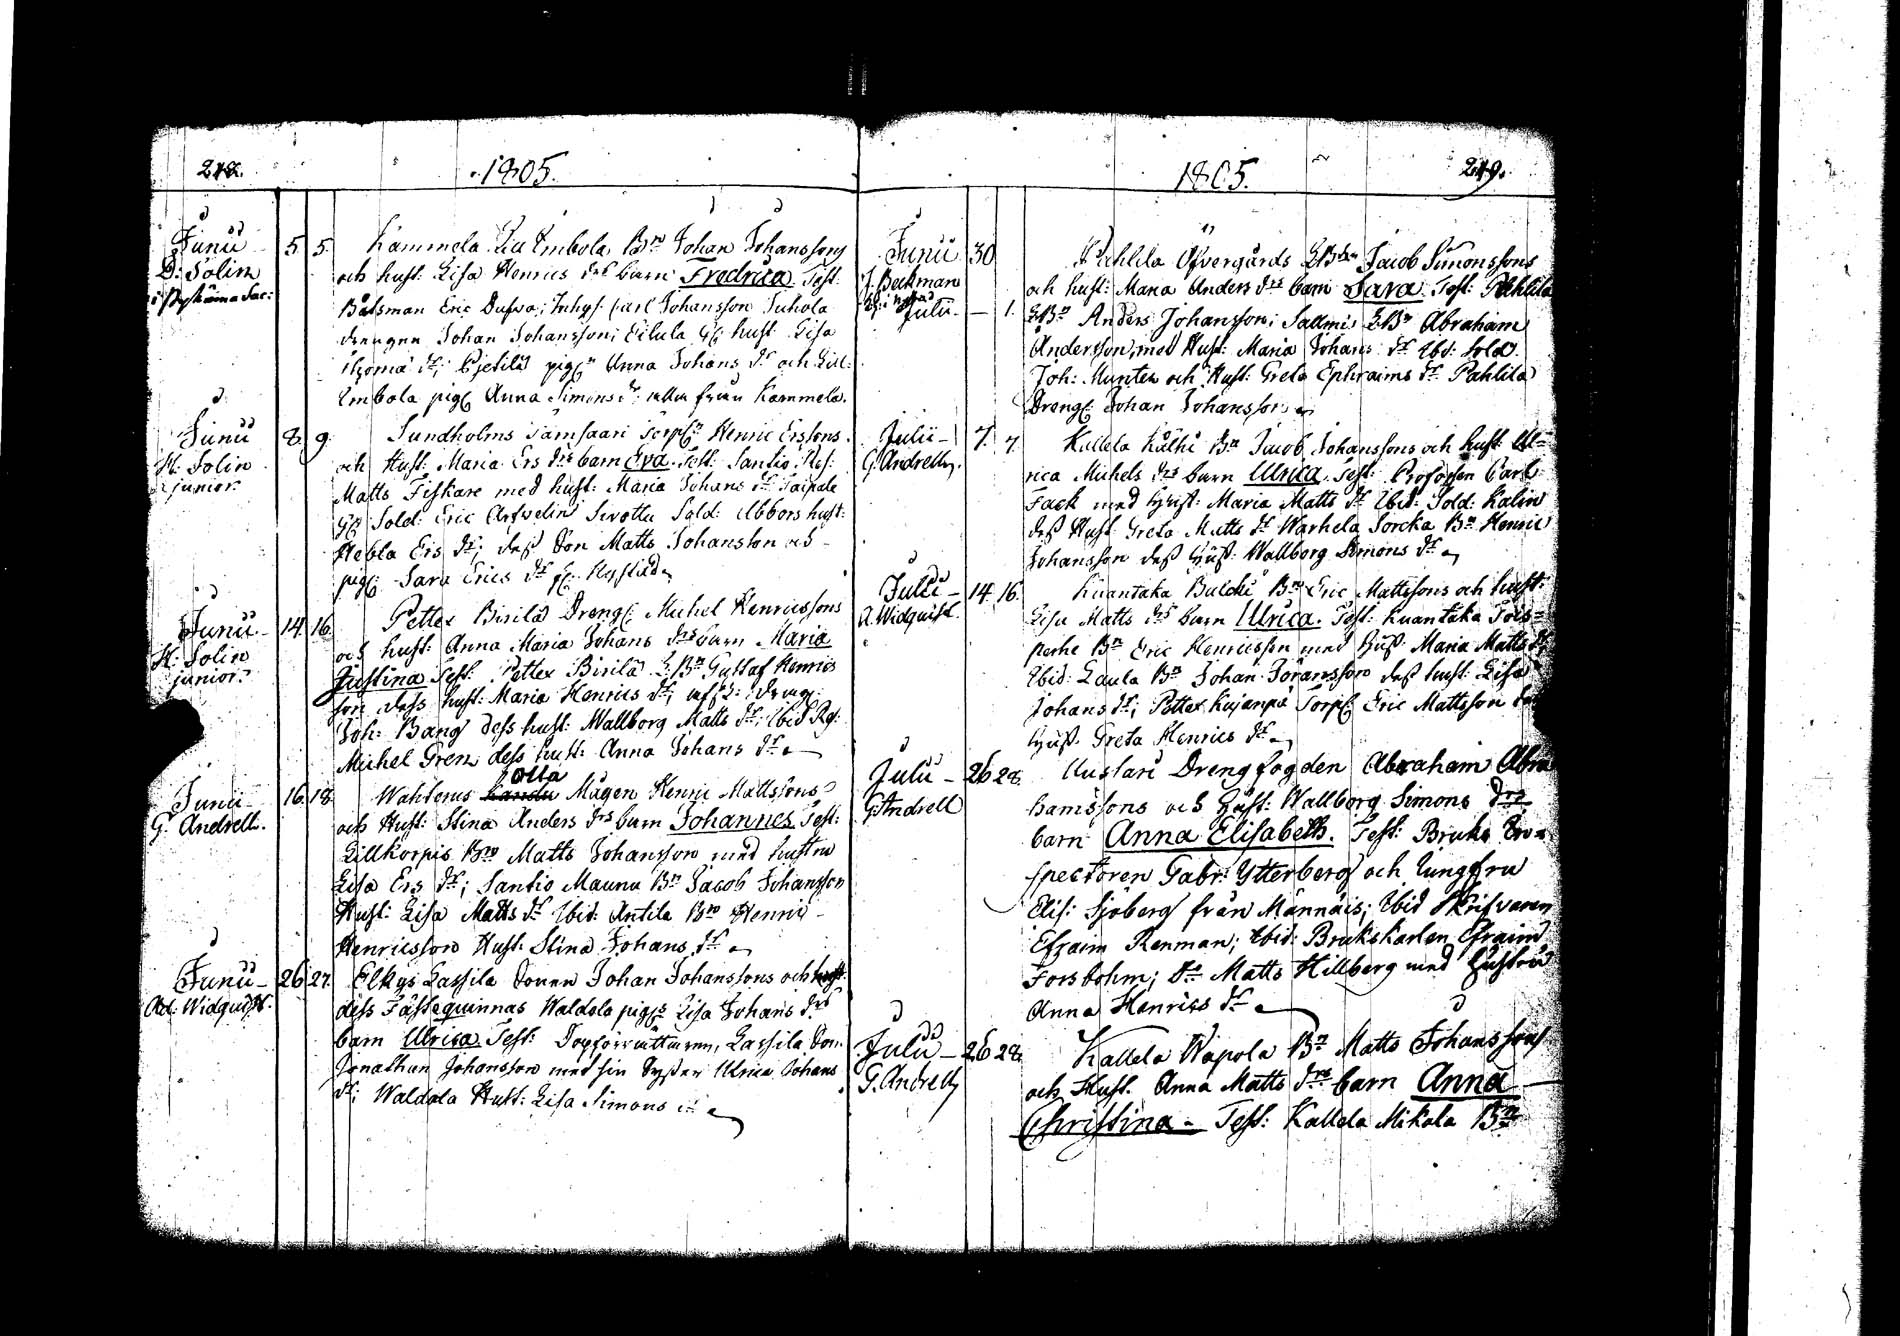 248.
1805.
Junii 5. 5. Kammela Embola Bn Johan Johanssons
D: Solin och hust: Lisa Henrics drs barn Fredrica Test:
Båtsman Eric Dufva; Inhys: Carl Johansson Juhola
drengen Johan Johansson; hust Lisa
Thoma dr; pigan Anna Johans dr och Lill:
Embola pig Anna Simons dr alla från Kammela.
Junii 8. 9. Sundholms Tamsaari Torp: Henric Erssons
H: Solin och Hust: Maria Ers drs barn Eva. Test: Santio
junior. Matts Fiskare med hust: Maria Johans dr Taipale
Sold: Eric Arfvelin Sold: Abbors hust:
Hebla Ers dr; dess Son Matts Johansson och
pig: Sara Erics dr
Junii 14. 16. Petter Birilä Dreng: Michel Henricssons
H: Solin och hust: Anna Maria Johans drs barn Maria
junior. Justina Test: Petter Birilä Bn Gustaf Henrics
son dess hust: Maria Henrics dr; dreng:
Joh: Bang dess hust: Wallborg Matts dr; Ibid
Michel Gren dess hust: Anna Johans dr
Olla
Junii 16. 18. Wahterus Mågen Henric Mattssons
G. Andrell. och Hust: Stina Anders drs barn Johannes Test:
Lillkorpis Bn Matts Johansson med hustru
Lisa Ers dr; Santio Maunu Bn Jacob Johansson
Hust: Lisa Matts dr Ibid: Antila Bn Henric
Henricsson Hust: Stina Johans dr
Junii 26. 27. Elkys Lassila Sonen Johan Johanssons och
Ad: Widquist. dess Fästequinnas Waldala pigs Lisa Johans drs
barn Ulrica. Test: Lassila Son:
Jonathan Johansson med sin Syster Ulrica Johans
dr; Waldala Hust: Lisa Simons dr
1805.
249.
Junii 30. Pahlila Öfvergårds Jacob Simonssons
J. Beckman och hust: Maria Anders drs barn Sara. Test: Pahlila
Julii 1. Bn Anders Johansson; Sallmis Bn Abraham
Andersson, med Hust: Maria Johans dr Ibd: Sold.
Joh: Munter och Hust: Greta Ephraims dr Pahlila
Dreng: Johan Johansson
Julii 7. 7. Kallela Kälhi Bn Jacob Johanssons och hust: Ul=
G. Andrell. rica Michels drs barn Ulrica. Test: Profossen Carl
Fack med Hust: Maria Matts dr Ibid: Sold: Kalin
dess Hust Greta Matts dr Warhela Sorcka Bn Henric
Johansson dess Hust: Wallborg Simons dr
Julii 14. 16. Kuantaka Bulcki Bn Eric Mattssons och hust:
A. Widquist. Lisa Matts drs barn Ulrica. Test: Kuantaka
Bn Eric Henricsson med Hust: Maria Matts dr
Ibid: Laula Bn Johan Göransson dess hust: Lisa
Johans dr; Petter Kujanpä Torp: Eric Mattsson
Hust. Greta Henrics dr
Julii 26. 28. Drengfogden Abraham Abra
G. Andrell hamssons och Hust: Wallborg Simons drs
barn Anna Elisabeth. Test: Bruks In=
spectoren Gabr: Ytterberg och Jungfru
Elis: Sjöberg från Männäis; Ibid Skrifvaren
Efraim Renman; Ibid: Brukskarlen Efraim
Forsbohm; Matts Hillberg med Hustru
Anna Henrics dr
Julii 26. 28. Kallela Wapola Bn Matts Johanssons
G. Andrell och Hust: Anna Matts drs barn Anna
Christina - Test: Kallela Mikola Bn